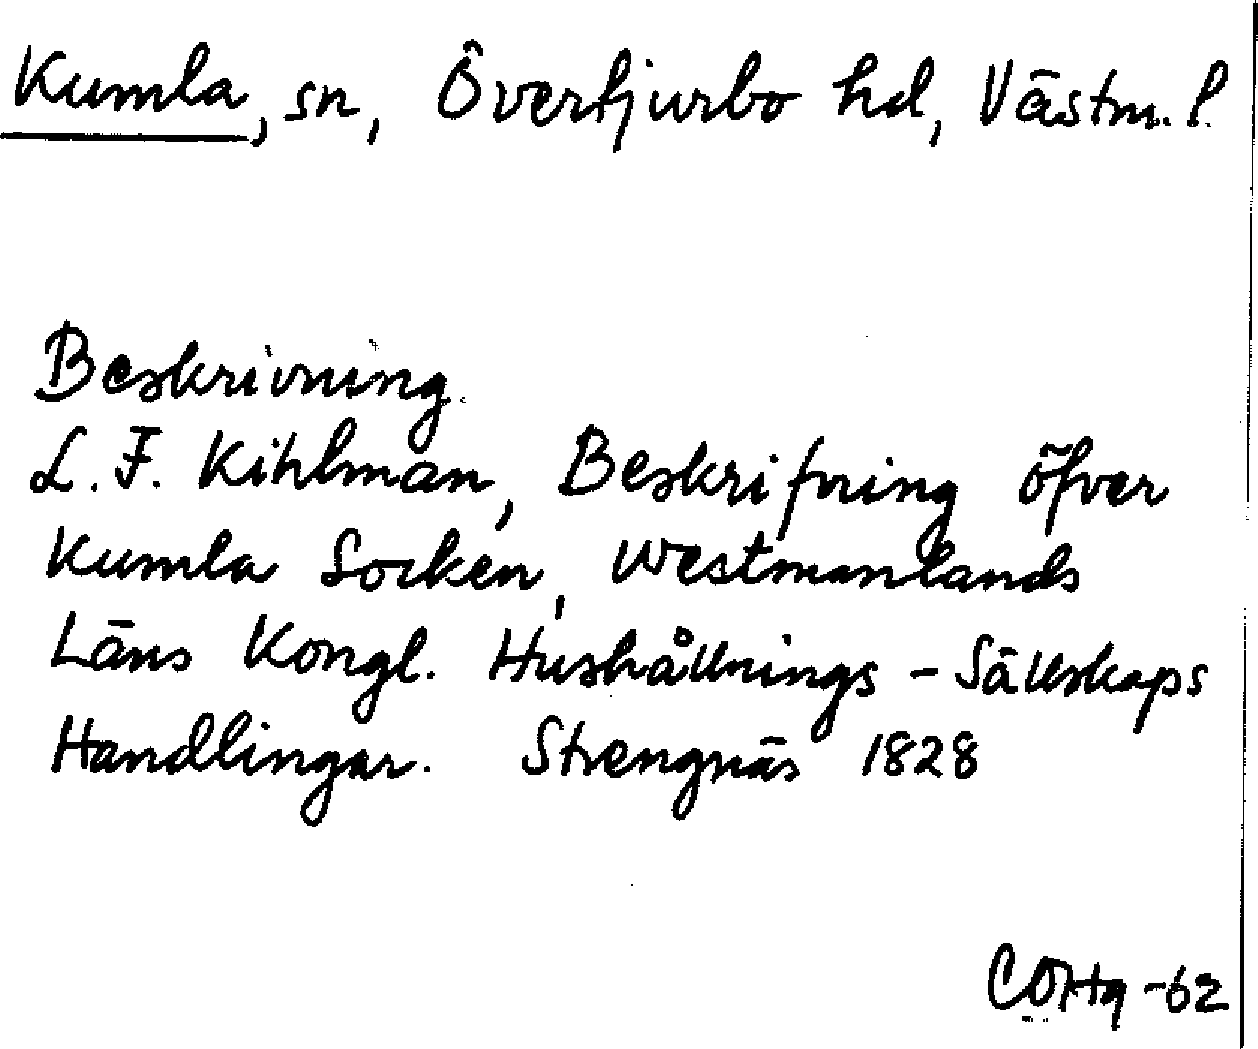 Kumla, sn, Övertjurbo hd, Västm. l.
Beskrivning.
L. F. Kihlman, Beskrifning öfver
Kumla Socken, Westmanlands
Läns Kongl. Hushållnings-Sällskaps
Handlingar. Strengnäs 1828
-62